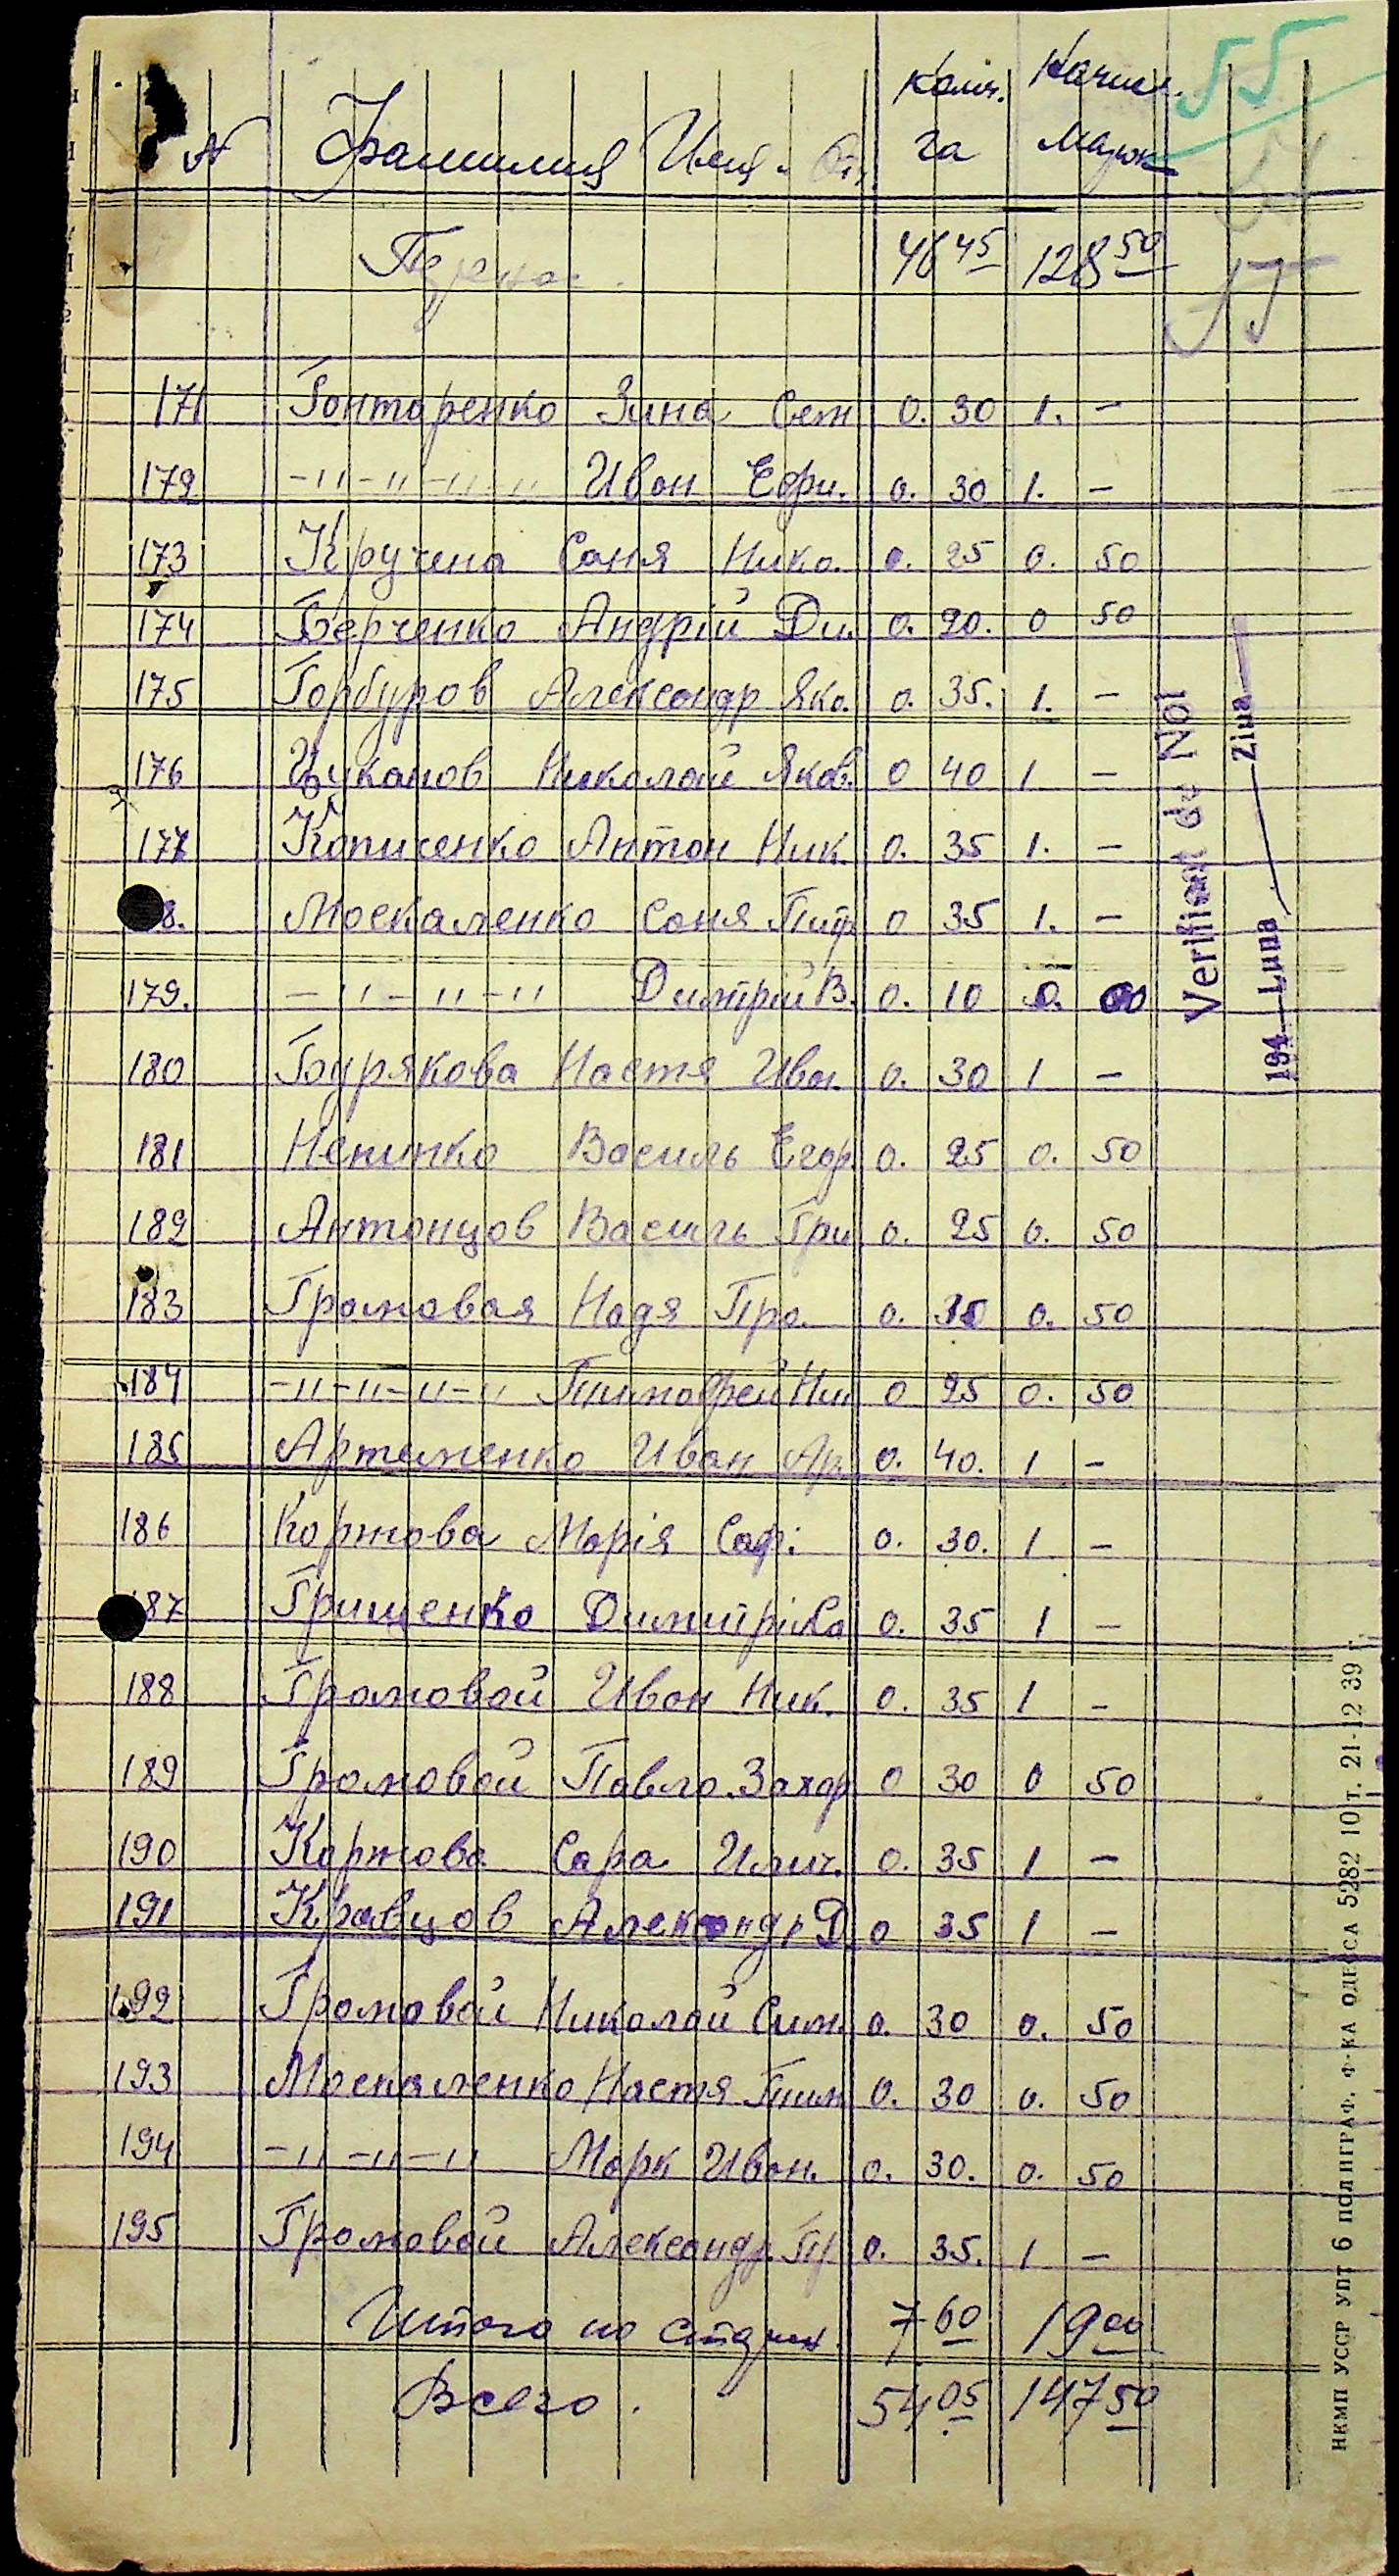 55
Колич. Начисл.
N Фамилия Имя и От. га Марок
Перенос. 46 45 128 50
55
171 Гонтаренко Зина Сем 0. 30 1. –
172 –"–"–"–" Иван Ефри. 0. 30 1. –
173 Кручена Саня Нико. 0. 25 0. 50
174 Берченко Андрій Дм. 0. 20. 0 50
175 Горбуров Александр Яко. 0. 35. 1. –
176 Цуканов Николай Яков. 0 40 1 –
177 Копиченко Антон Ник. 0. 35 1. –
8. Москаленко Соня Питр 0 35 1. –
179. –"–"–" Димтрій В. 0. 10 0. 00
180 Бурякова Настя Иван. 0. 30 1 –
181 Ненинко Василь Егор 0. 25 0. 50
182 Антонцов Василь Гри 0. 25 0. 50
183 Громовая Надя Про. 0. 35 0. 50
184 –"–"–"–" Тимофей Ник 0 25 0. 50
185 Артеменко Иван Ар. 0. 40. 1 –
186 Коржова Марія Саф. 0. 30. 1 –
187 Грищенко Димитрі Са 0. 35 1 –
188 Громовой Иван Ник. 0. 35 1 –
189 Громовой Павло Захар 0 30 0 50
190 Коржова Сара Илич. 0. 35 1 –
191 Кравцов Александр Д. 0 35 1 –
192 Громовой Николай Сим. 0. 30 0. 50
193 Москаленко Настя Тим 0. 30 0. 50
194 –"–"–" Марк Иван. 0. 30. 0. 50
195 Громовой Александр Гр 0. 35. 1 –
Итого по стран. 7 60 19 00
Всего. 54 05 147 50
Verificat de Noi
194 Luna Ziua
НКМП УССР УПТ 6 ПОЛИГРАФ. Ф-КА ОДЕССА 5282 10 т. 21-12 39 г.